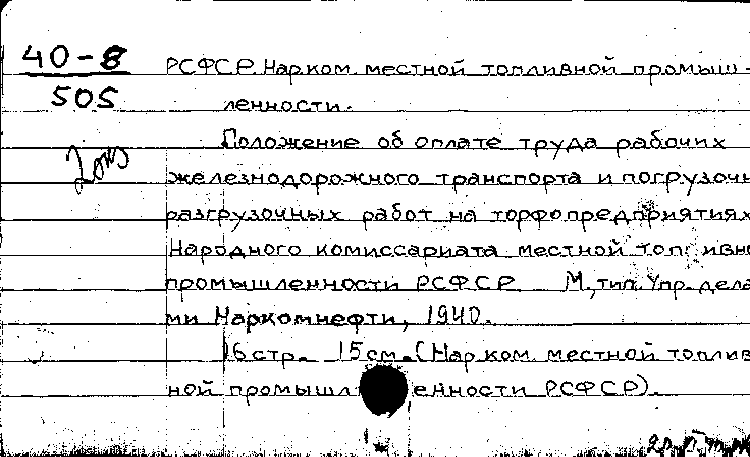 40-8
505
2 экз
РСФСР. Нар.ком. местной топливной промыш-
ленности.
Положение об оплате труда рабочих
железнодорожного транспорта и погрузочн
разгрузочных работ на торфопредприятиях
Народного комиссариата местной топливно
промышленности РСФСР. М., тип. Упр. дела
ми Наркомнефти, 1940.
16 стр. 15 см. (Нар.ком. местной топлив
ной промышленности РСФСР).